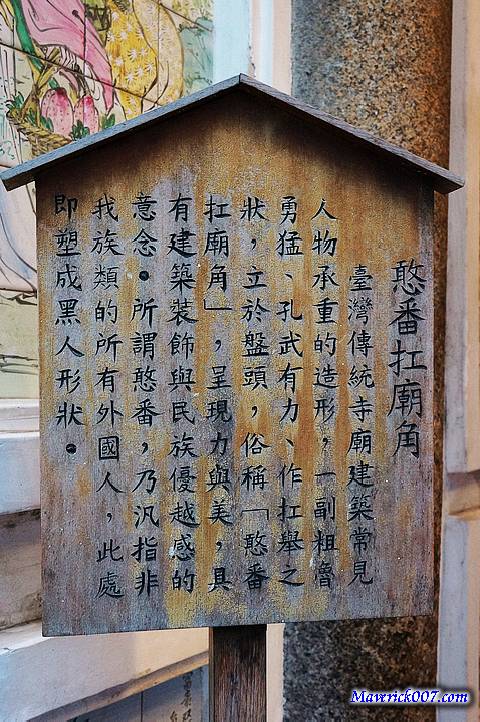 憨番扛廟角
臺灣傳統寺廟建築常見
人物承重的造形，一副粗魯
勇猛、孔武有力、作扛舉之
狀，立於盤頭，俗稱「憨番
扛廟角」，呈現力與美，具
有建築裝飾與民族優越感的
意念。所謂憨番，乃汎指非
我族類的所有外國人，此處
即塑成黑人形狀。
Maverick007.com